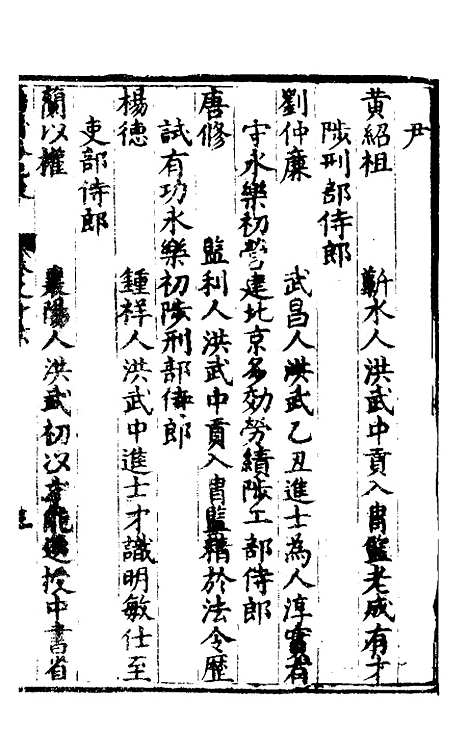 尹
黄紹祖 蘄水人洪武中貢入胄監老成有才
陟刑部侍郎
劉仲廉 武昌人洪武乙丑進士為人淳實有
守永樂初營建北京多効勞績陟工部侍郎
唐修 監利人洪武中貢入胄監精於法令歷
試有功永樂初陟刑部侍郎
楊德 鍾祥人洪武中進士才識明敏仕至
吏部侍郎
蘭以權 襄陽人洪武初以才能選授中書省